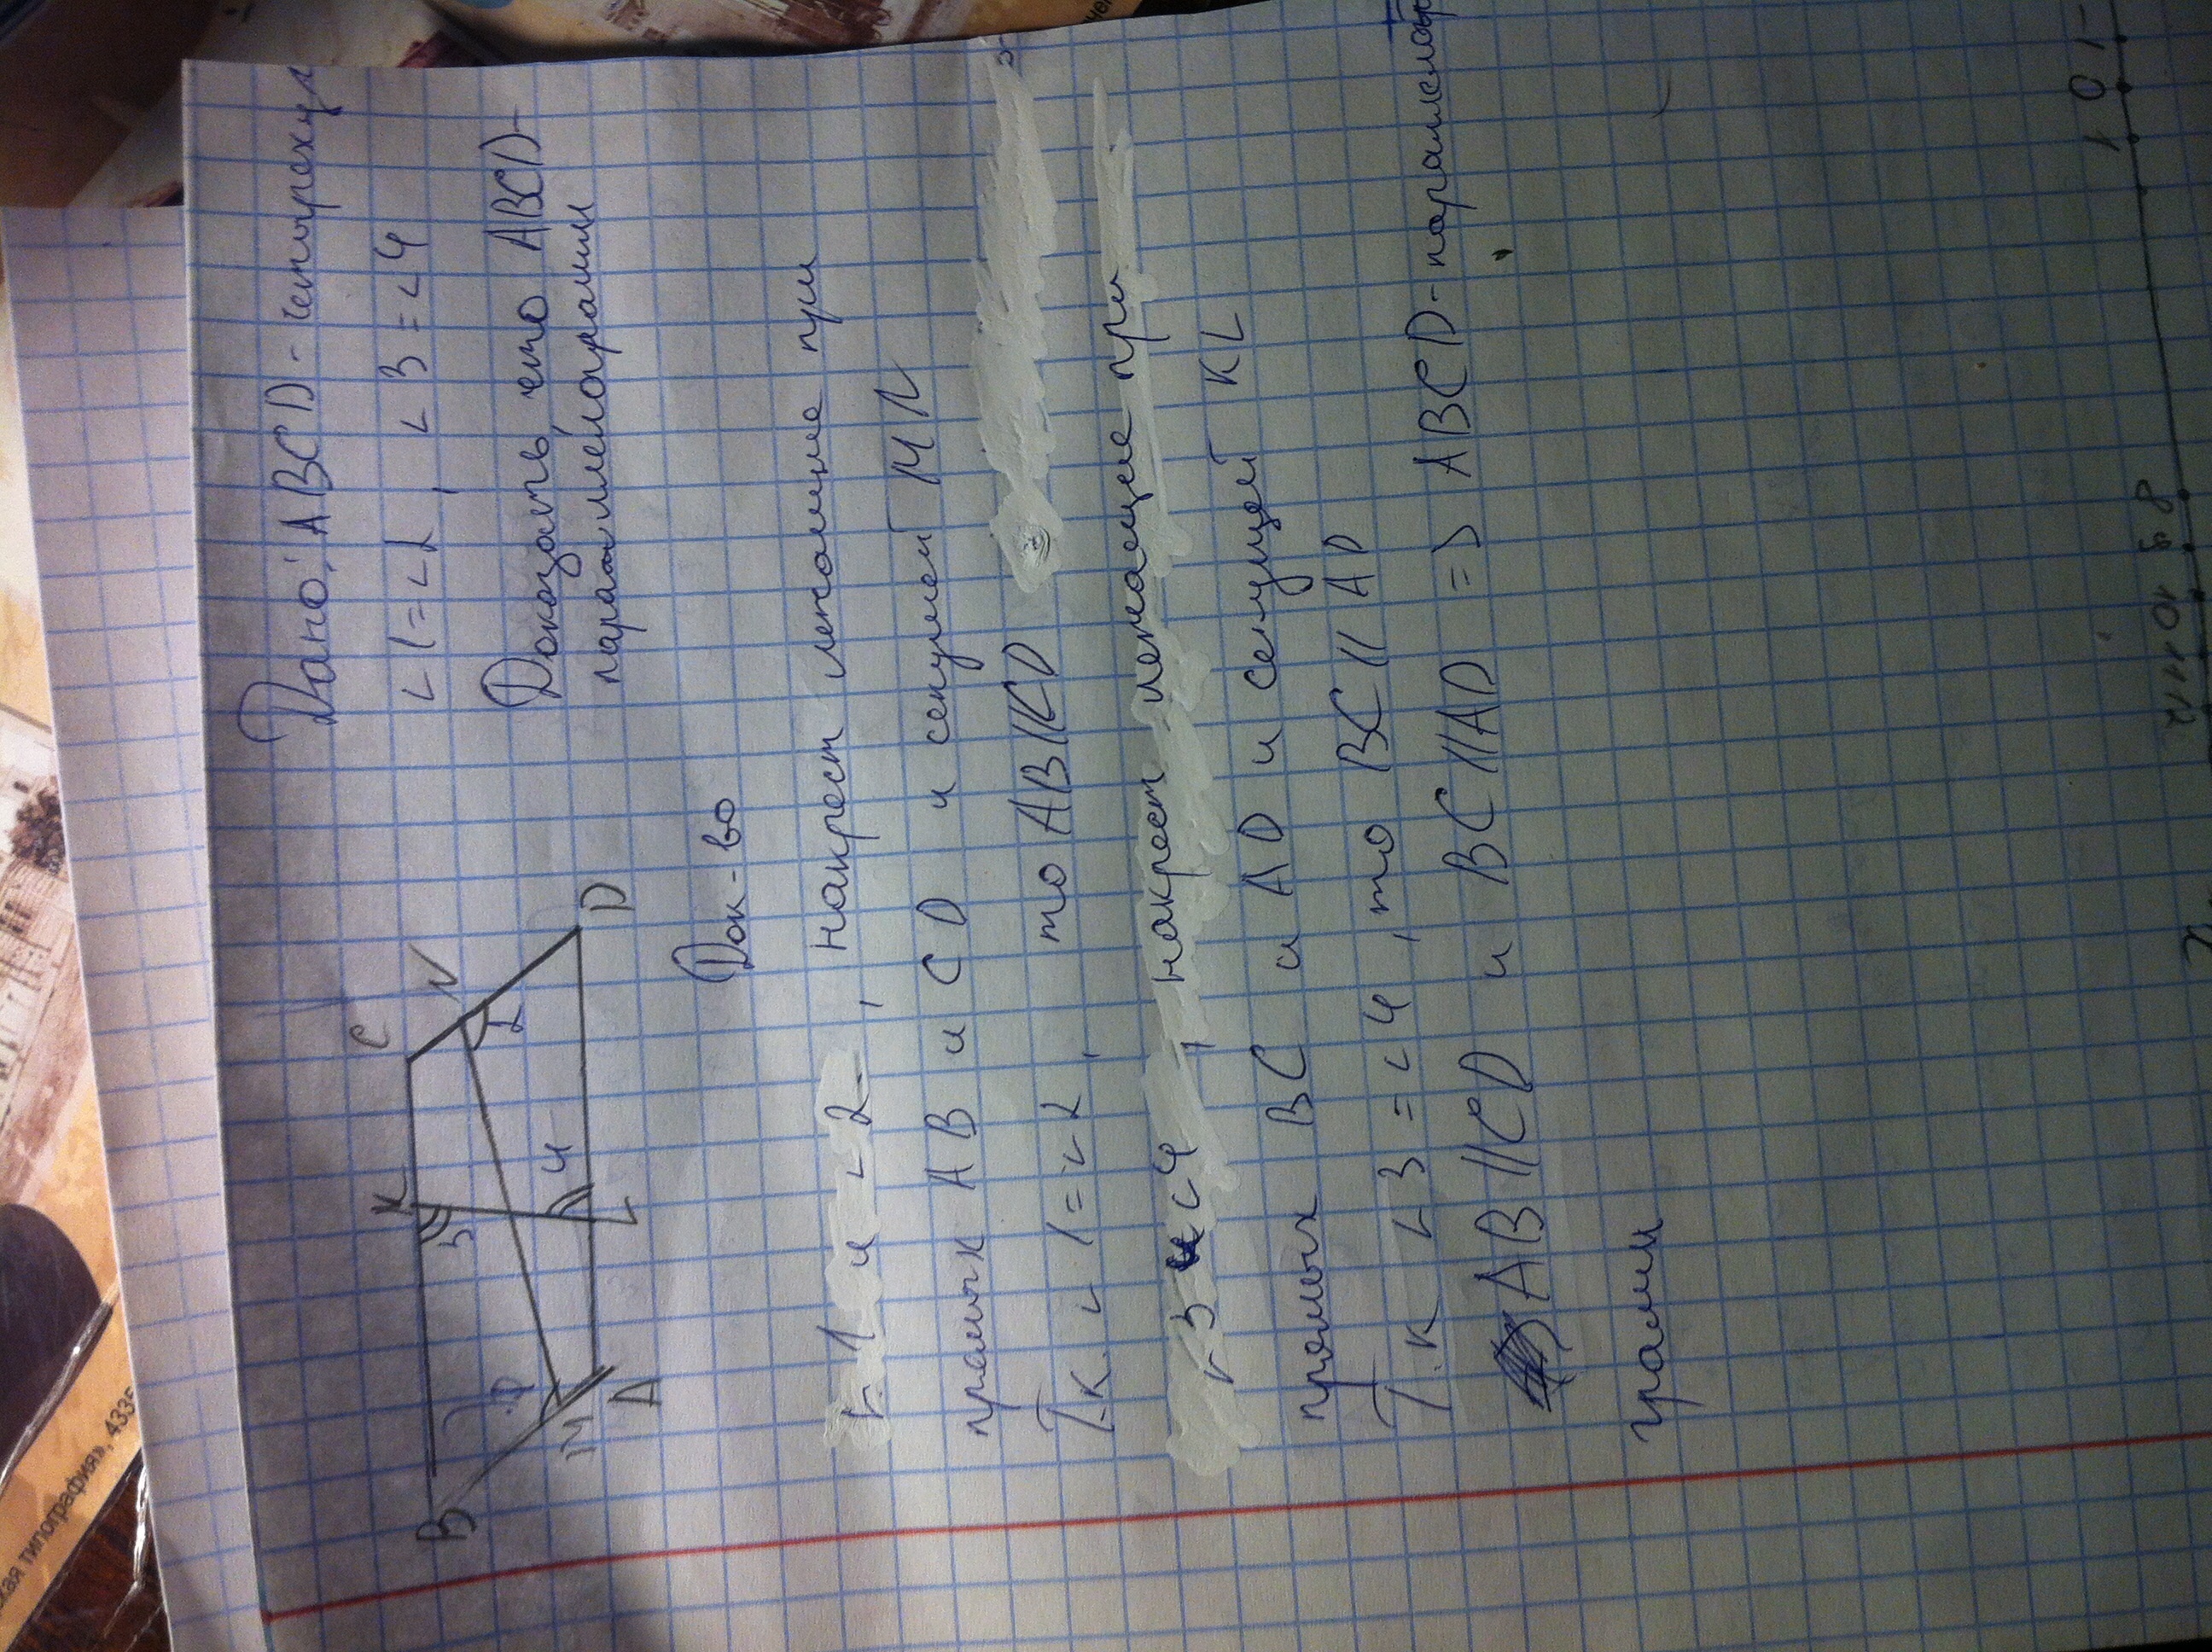 Дано: ABCD - четырехуг
∠1=∠2, ∠3=∠4
Доказать что ABCD-
параллелограмм
B K C N D
3 1 2 4
M A L
Док-во
∠1 и ∠2, накрест лежащие при
прямых AB и CD и секущей MN
Т.к. ∠1=∠2, то AB||CD
∠3 и ∠4, накрест лежащие при
прямых BC и AD и секущей KL
Т.к ∠3=∠4, то BC||AD
AB||CD и BC||AD => ABCD-параллело
грамм
8 9 10 11 12
1 0 -1
кая типография», 4335